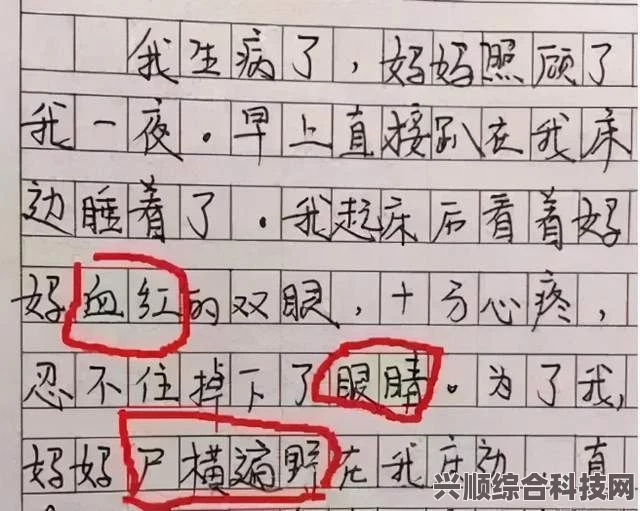 我生病了，妈妈照顾了
我一夜．早上直接趴在我床
边睡着了．我起床后看着妈
妈血红的双眼，十分心疼，
忍不住掉下了眼睛。为了我，
妈妈尸横遍野在我床边
直
兴顺综合科技网